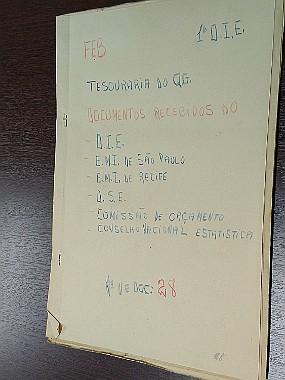 FEB 1ª D.I.E.
TESOURARIA DO QG.
DOCUMENTOS RECEBIDOS DO
- D.I.E.
- E.M.I. DE SÃO PAULO
- E.M.I. DE RECIFE
- Q.S.E.
- COMISSÃO DE ORÇAMENTO
- CONSELHO NACIONAL ESTATISTICA
Nº DE DOC: 28